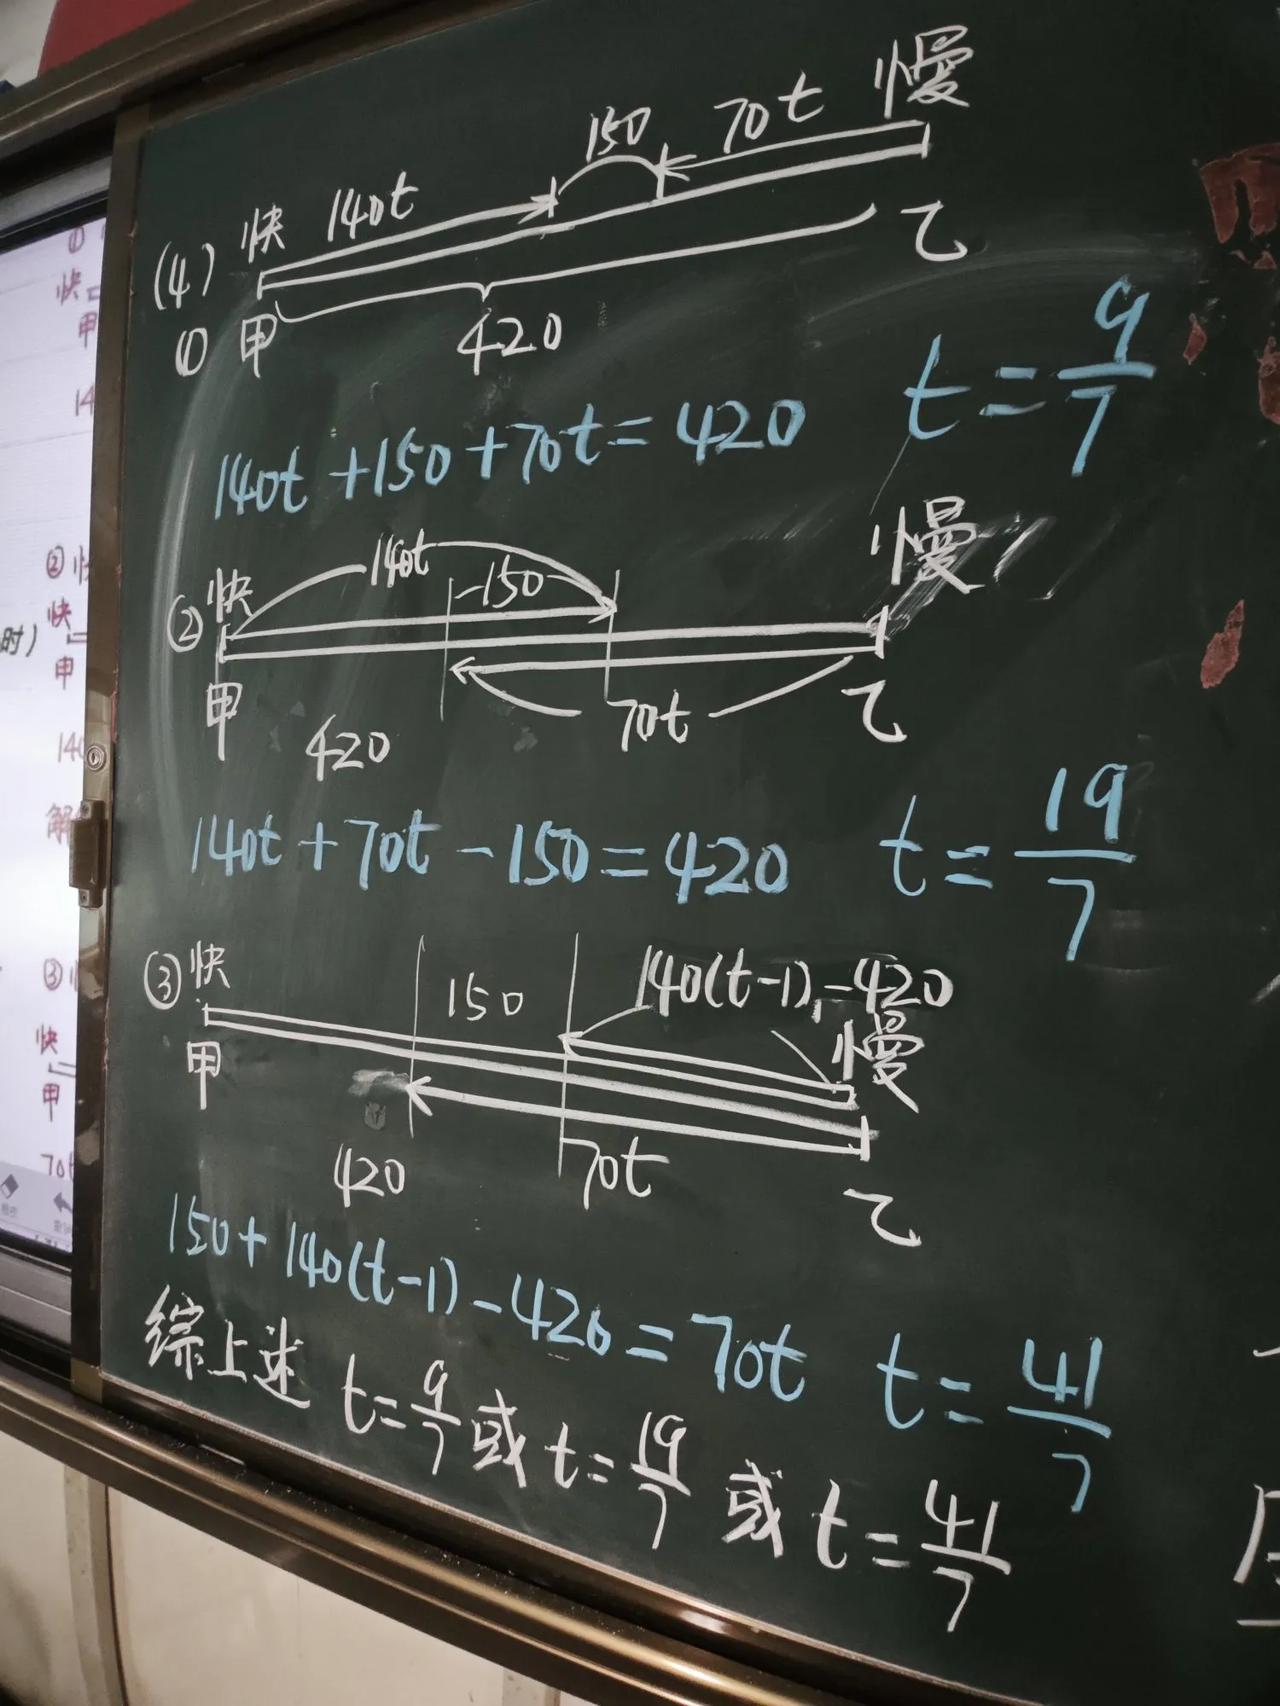 慢
150 70t
快 140t
(4)
① 甲 乙
420
140t+150+70t=420 t=9/7
慢
140t
快 -150
②
甲 70t 乙
420
140t+70t-150=420 t=19/7
③ 快 150 140(t-1)-420
慢
甲
420 70t 乙
150+140(t-1)-420=70t t=41/7
综上述 t=9/7 或 t=19/7 或 t=41/7
①
快
甲
14
② 快
快
时)
甲
140
解
③
快
甲
70t